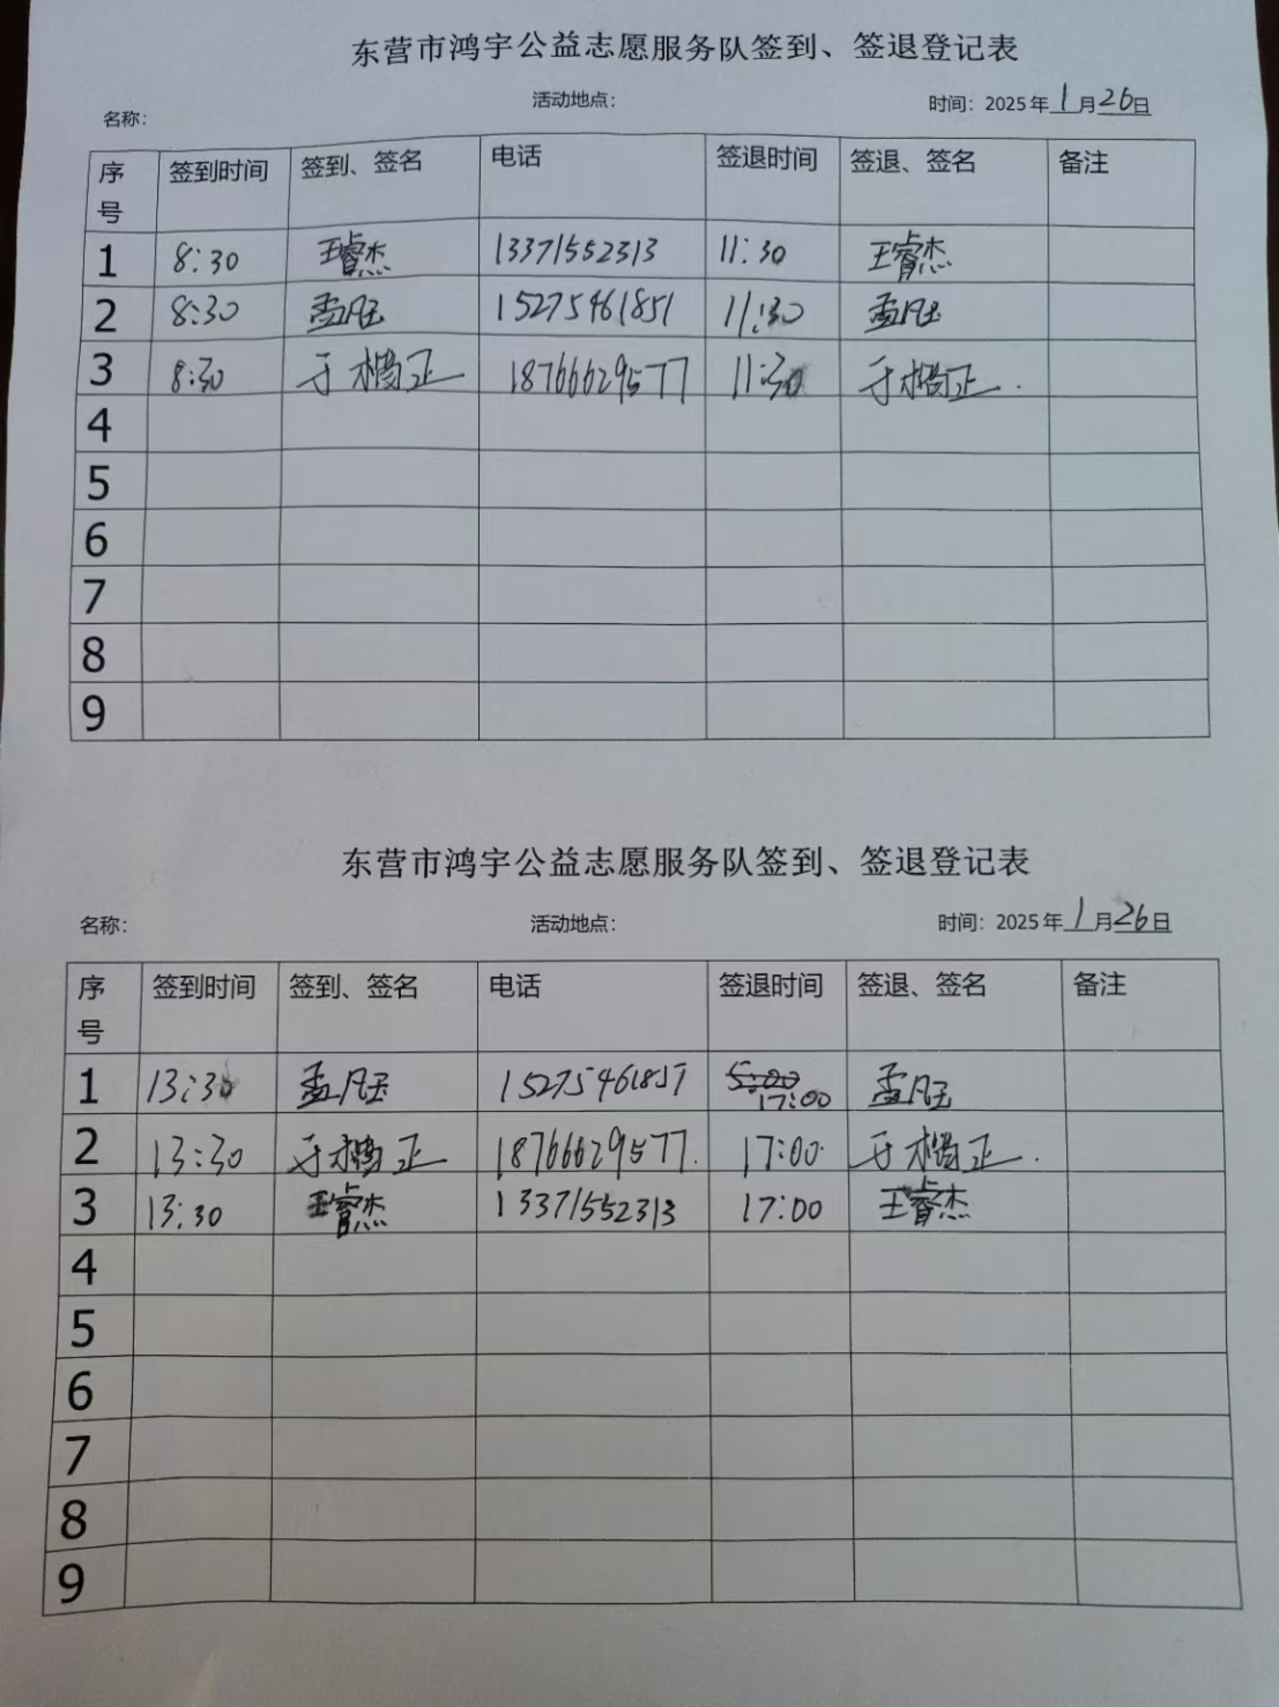 东营市鸿宇公益志愿服务队签到、签退登记表
名称： 活动地点： 时间：2025年1月26日
序号 签到时间 签到、签名 电话 签退时间 签退、签名 备注
1 8:30 王睿杰 13371552313 11:30 王睿杰
2 8:30 孟凡玉 15275461851 11:30 孟凡玉
3 8:30 于楊正 18766629577 11:30 于楊正
4
5
6
7
8
9
东营市鸿宇公益志愿服务队签到、签退登记表
名称： 活动地点： 时间：2025年1月26日
序号 签到时间 签到、签名 电话 签退时间 签退、签名 备注
1 13:30 孟凡玉 15275461851 5:00 17:00 孟凡玉
2 13:30 于楊正 18766629577. 17:00 于楊正.
3 13:30 王睿杰 13371552313 17:00 王睿杰
4
5
6
7
8
9